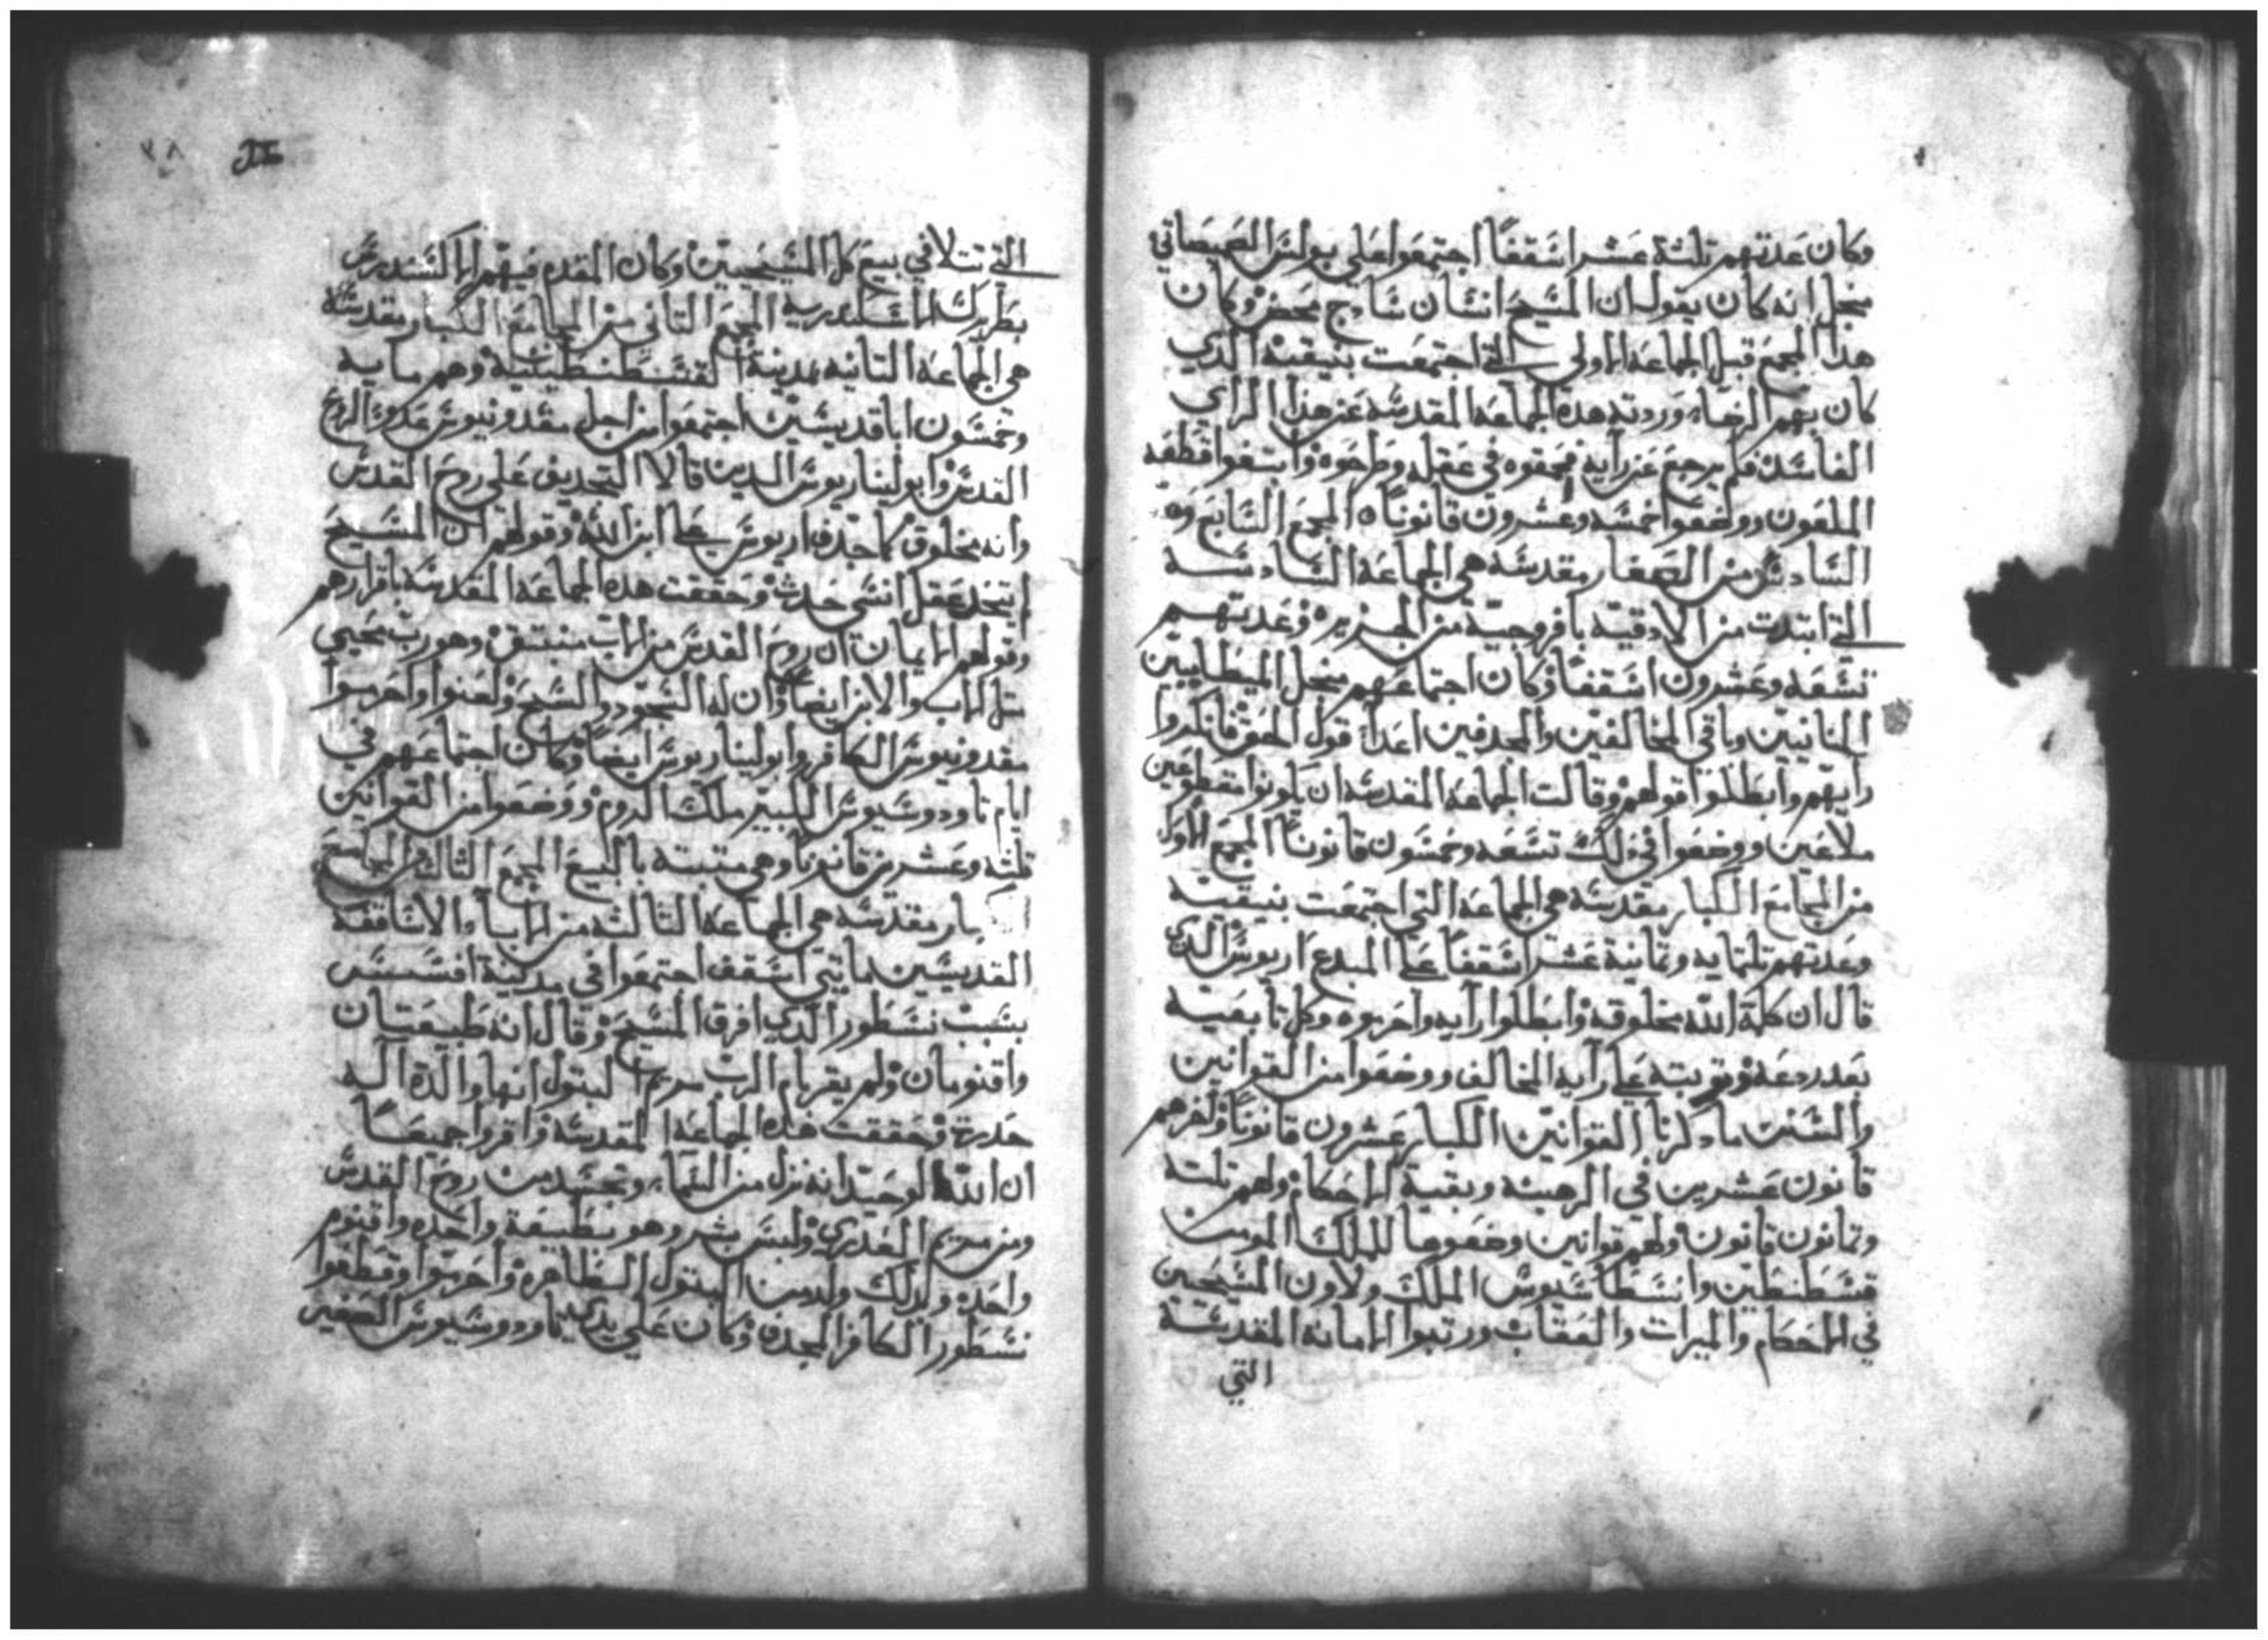 وكان عدتهم تلتة عشر اسقفا اجتمعوا على بولس السميصاتي
منجل انه كان يقول ان المسيح انسان سادج محض وكان
هدا المجمع قبل الجماعة الاولى التي اجتمعت بنيقية الدي
كان بهم الرضاء وردته هده الجماعة المقدسة عن هدا الراي
الفاسد فلم يرجع عن رايه فمحقوه في عقله وطرحوه
الملعون ووضعوا خمسه وعشرون قانونا المجمع السابع وه
السادس من الصغار مقدسة هي الجماعة السادسة
التي ابتدت من الادقية بافروجية من الجزيره وعدتهم
تسعه وعشرون اسقفا وكان اجتماعهم منجل
المنانيين وباقي المخالفين والمجدفين اعدا قول الحق فانكروا
رايهم وابطلوا قولهم وقالت الجماعة المقدسة ان يكونوا مقطوعين
ملاعين ووضعوا في دلك تسعه وخمسون قانونا المجمع الاول
من المجامع الكبار مقدسة هي الجماعة التي اجتمعت بنيقية
وعدتهم تلتمايه وتمانية عشر اسقفا على المبدع اريوس الدي
قال ان كلمة الله مخلوقة وابطلوا رايه واحرموه وكل تابعيه
بعد ردعه وتوبته على رايه المخالف ووضعوا من القوانين
والسنن ما دكرنا القوانين الكبار عشرون قانونا ولهم
قانون عشرين في الرهبنه وبقية الاحكام ولهم تلتة
وتمانون قانون ولهم قوانين وضعوها للملك المومن
قسطنطين وانسطاسيوس الملك ولاون المسيحيين
في الاحكام والميرات والعقاب ورتبوا الامانة المقدسة
التي
التي تتلا في بيع كل المسيحيين وكان المقدم فيهم الكسندرس
بطريرك الاسكندرية المجمع التاني من المجامع الكبار مقدسة
هي الجماعة التانيه بمدينة القسطنطينية وهم مايه
وخمسون ابا قديسين اجتمعوا من اجل مقدونيوس عدو الروح
القدس وابوليناريوس الدين قالا التجديف على روح القدس
وانه مخلوق كما جدف اريوس على ابن الله وقولهم ان المسيح
اتخد عقل انسي حدث وحققت هده الجماعة المقدسة باقرارهم
وقولهم الايمان ان روح القدس من الاب منبتق وهو رب محيي
متل الاب والابن ايضا وان له السجود والتسبيح ولعنوا واحرموا
مقدونيوس الكافر وابوليناريوس ايضا وكان اجتماعهم في
ايام تاودوسيوس الكبير ملك الروم ووضعوا من القوانين
تلته وعشرين قانونا وهي متبته بالبيع المجمع التالت المجامع
الكبار مقدسة هي الجماعة التالته من الابا والاساقفة
القديسين مايتي اسقف اجتمعوا في مدينة افسس
بسبب نسطور الدي افرق المسيح وقال انه طبيعتان
واقنومان ولم يقر بام الرب مريم البتول انها والدة اله
حديت وحققت هده الجماعة المقدسة واقروا جميعا
ان الله الوحيد انه نزل من السماء وتجسد من روح القدس
ومن مريم العدري ولبس بشر وهو بطبيعة واحده واقنوم
واحد ولدلك ولد من البتول الطاهره واحرموا وقطعوا
نسطور الكافر المجدف وكان على يدي تاودوسيوس الصغير